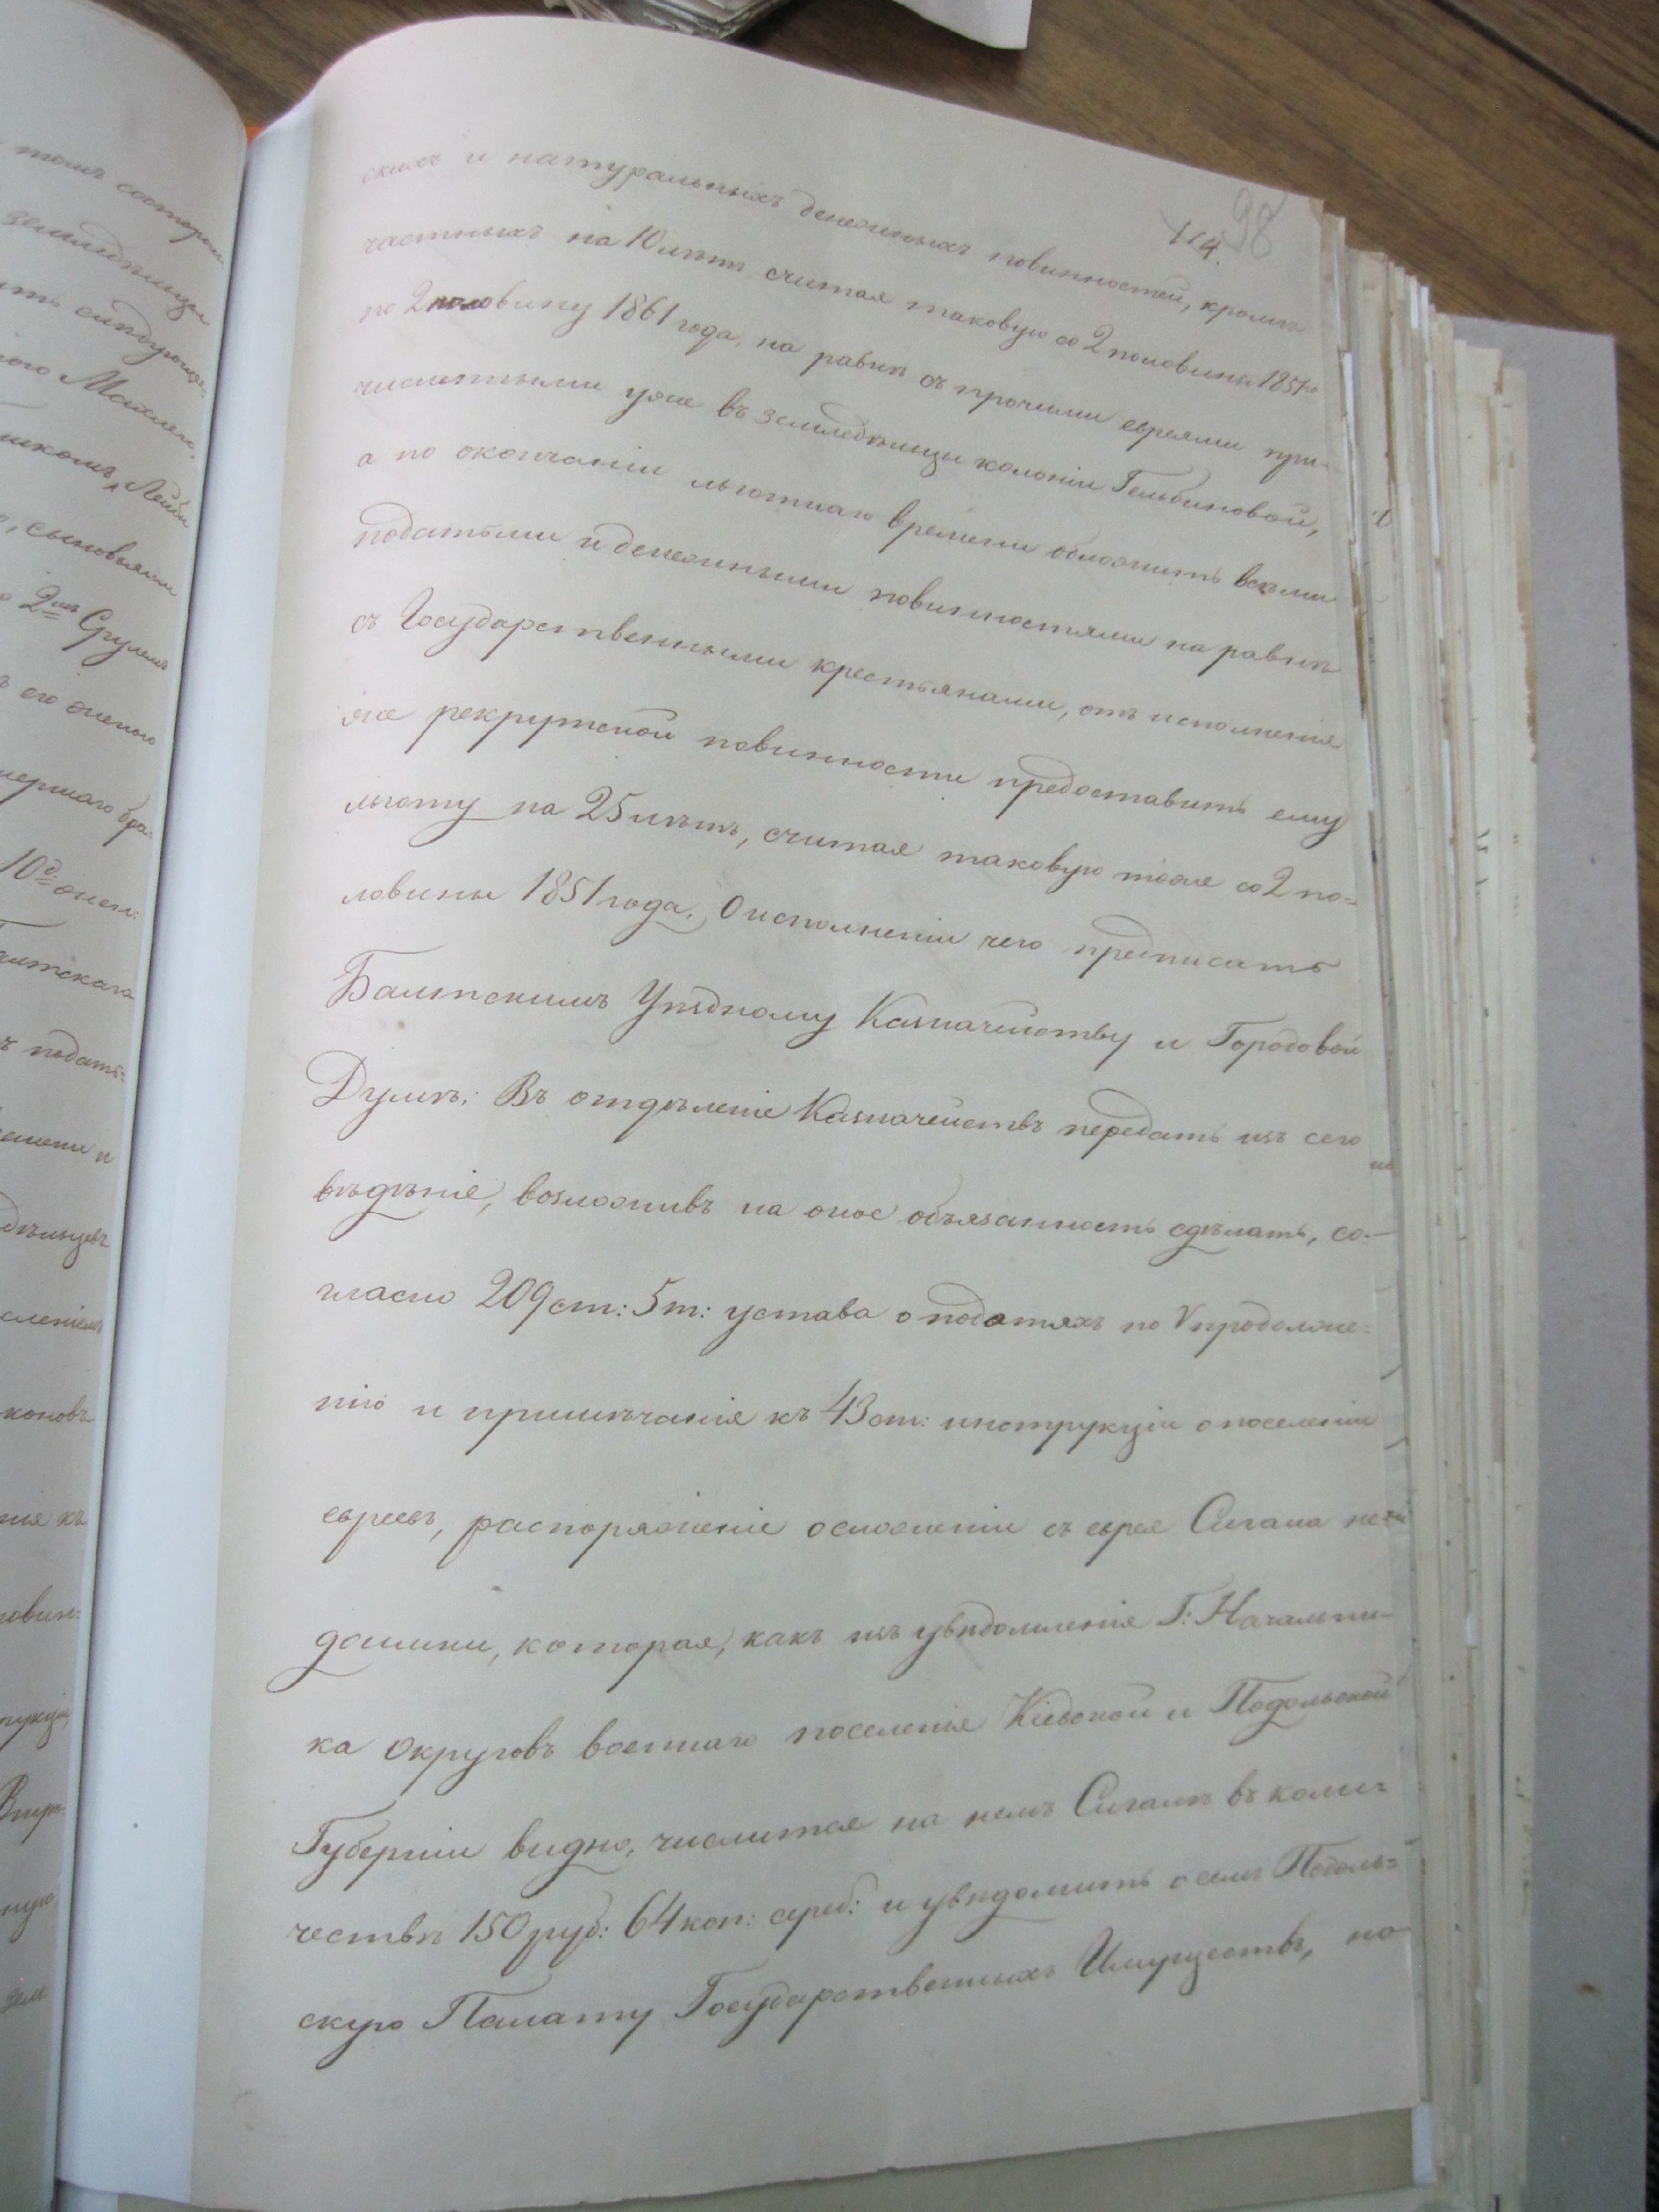 98
114.
скихъ и натуральныхъ денежныхъ повинностей, кромѣ
частныхъ на 10 лѣтъ считая таковую со 2 половины 1851 го
по 2 половину 1861 года, на равнѣ съ прочими евреями при-
численными уже въ земледѣльцы колоніи Гельбиновой,
а по окончаніи льготнаго времени обложить всѣми
податьми и денежными повинностями на равнѣ
съ Государственными крестьянами, отъ исполненія
же рекрутской повинности предоставить ему
льготу на 25 лѣтъ, считая таковую тоже со 2 по-
ловины 1851 года. О исполненіи чего предписать
Балтскимъ Уѣздному Казначейству и Городовой
Думѣ; Въ отдѣленіе Казначействъ передать изъ сего
вѣдѣніе, возложивъ на оное обязанность сдѣлать, со-
гласно 209 ст: 5 т: устава о податяхъ по V продолже-
нію и примѣчанія къ 43 ст: инструкціи о поселеніи
евреевъ, распоряженіе о сложеніи съ еврея Сигала не-
доимки, которая, какъ изъ увѣдомленія Г: Начальни-
ка Округовъ военнаго поселенія Кіевской и Подольской
Губерніи видно, числится на немъ Сигалѣ въ коли-
чествѣ 150 руб: 64 коп: сереб: и увѣдомить о семъ Подоль-
скую Палату Государственныхъ Имуществъ, но
томъ состоя
земледѣльцы
Лейби
сыновьями
2мъ Срулемъ
его женою
10й
подать-
коновъ
нія къ